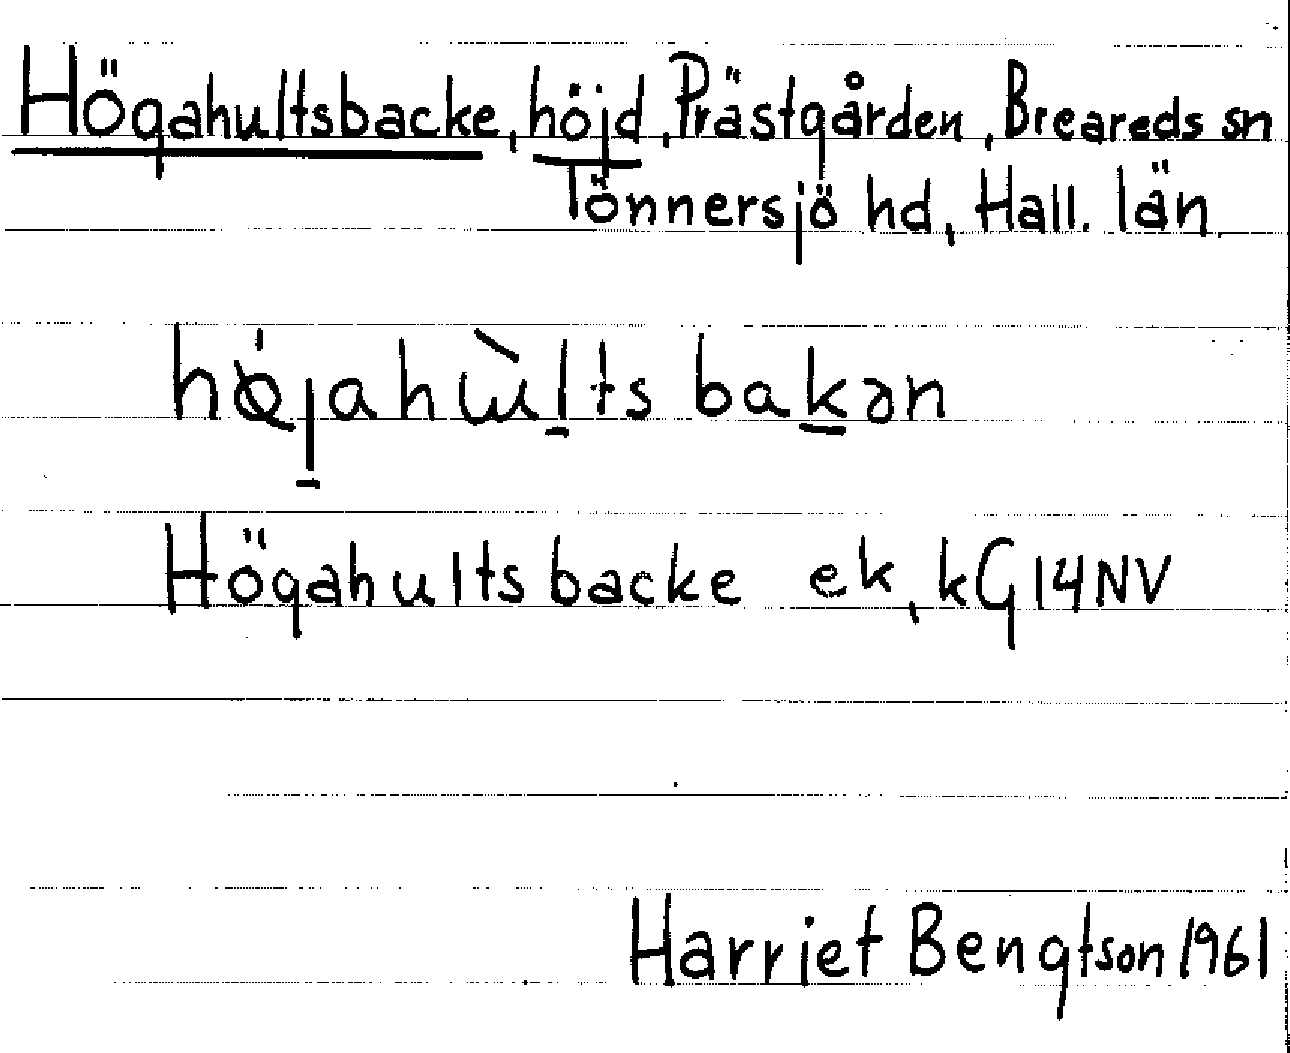 Högahultsbacke, höjd, Prästgården, Breareds sn
Tönnersjö hd, Hall. län
Högahultsbacke ek, kG14NV
Harriet Bengtson 1961